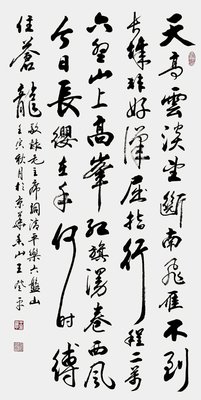 天高雲淡望斷南飛雁不到
长城非好漢屈指行程二萬
六盤山上高峯红旗漫卷西風
今日長纓在手何时縛
住蒼龍
敬録毛主席詞清平樂六盤山
壬寅秋月於京華香山王登平